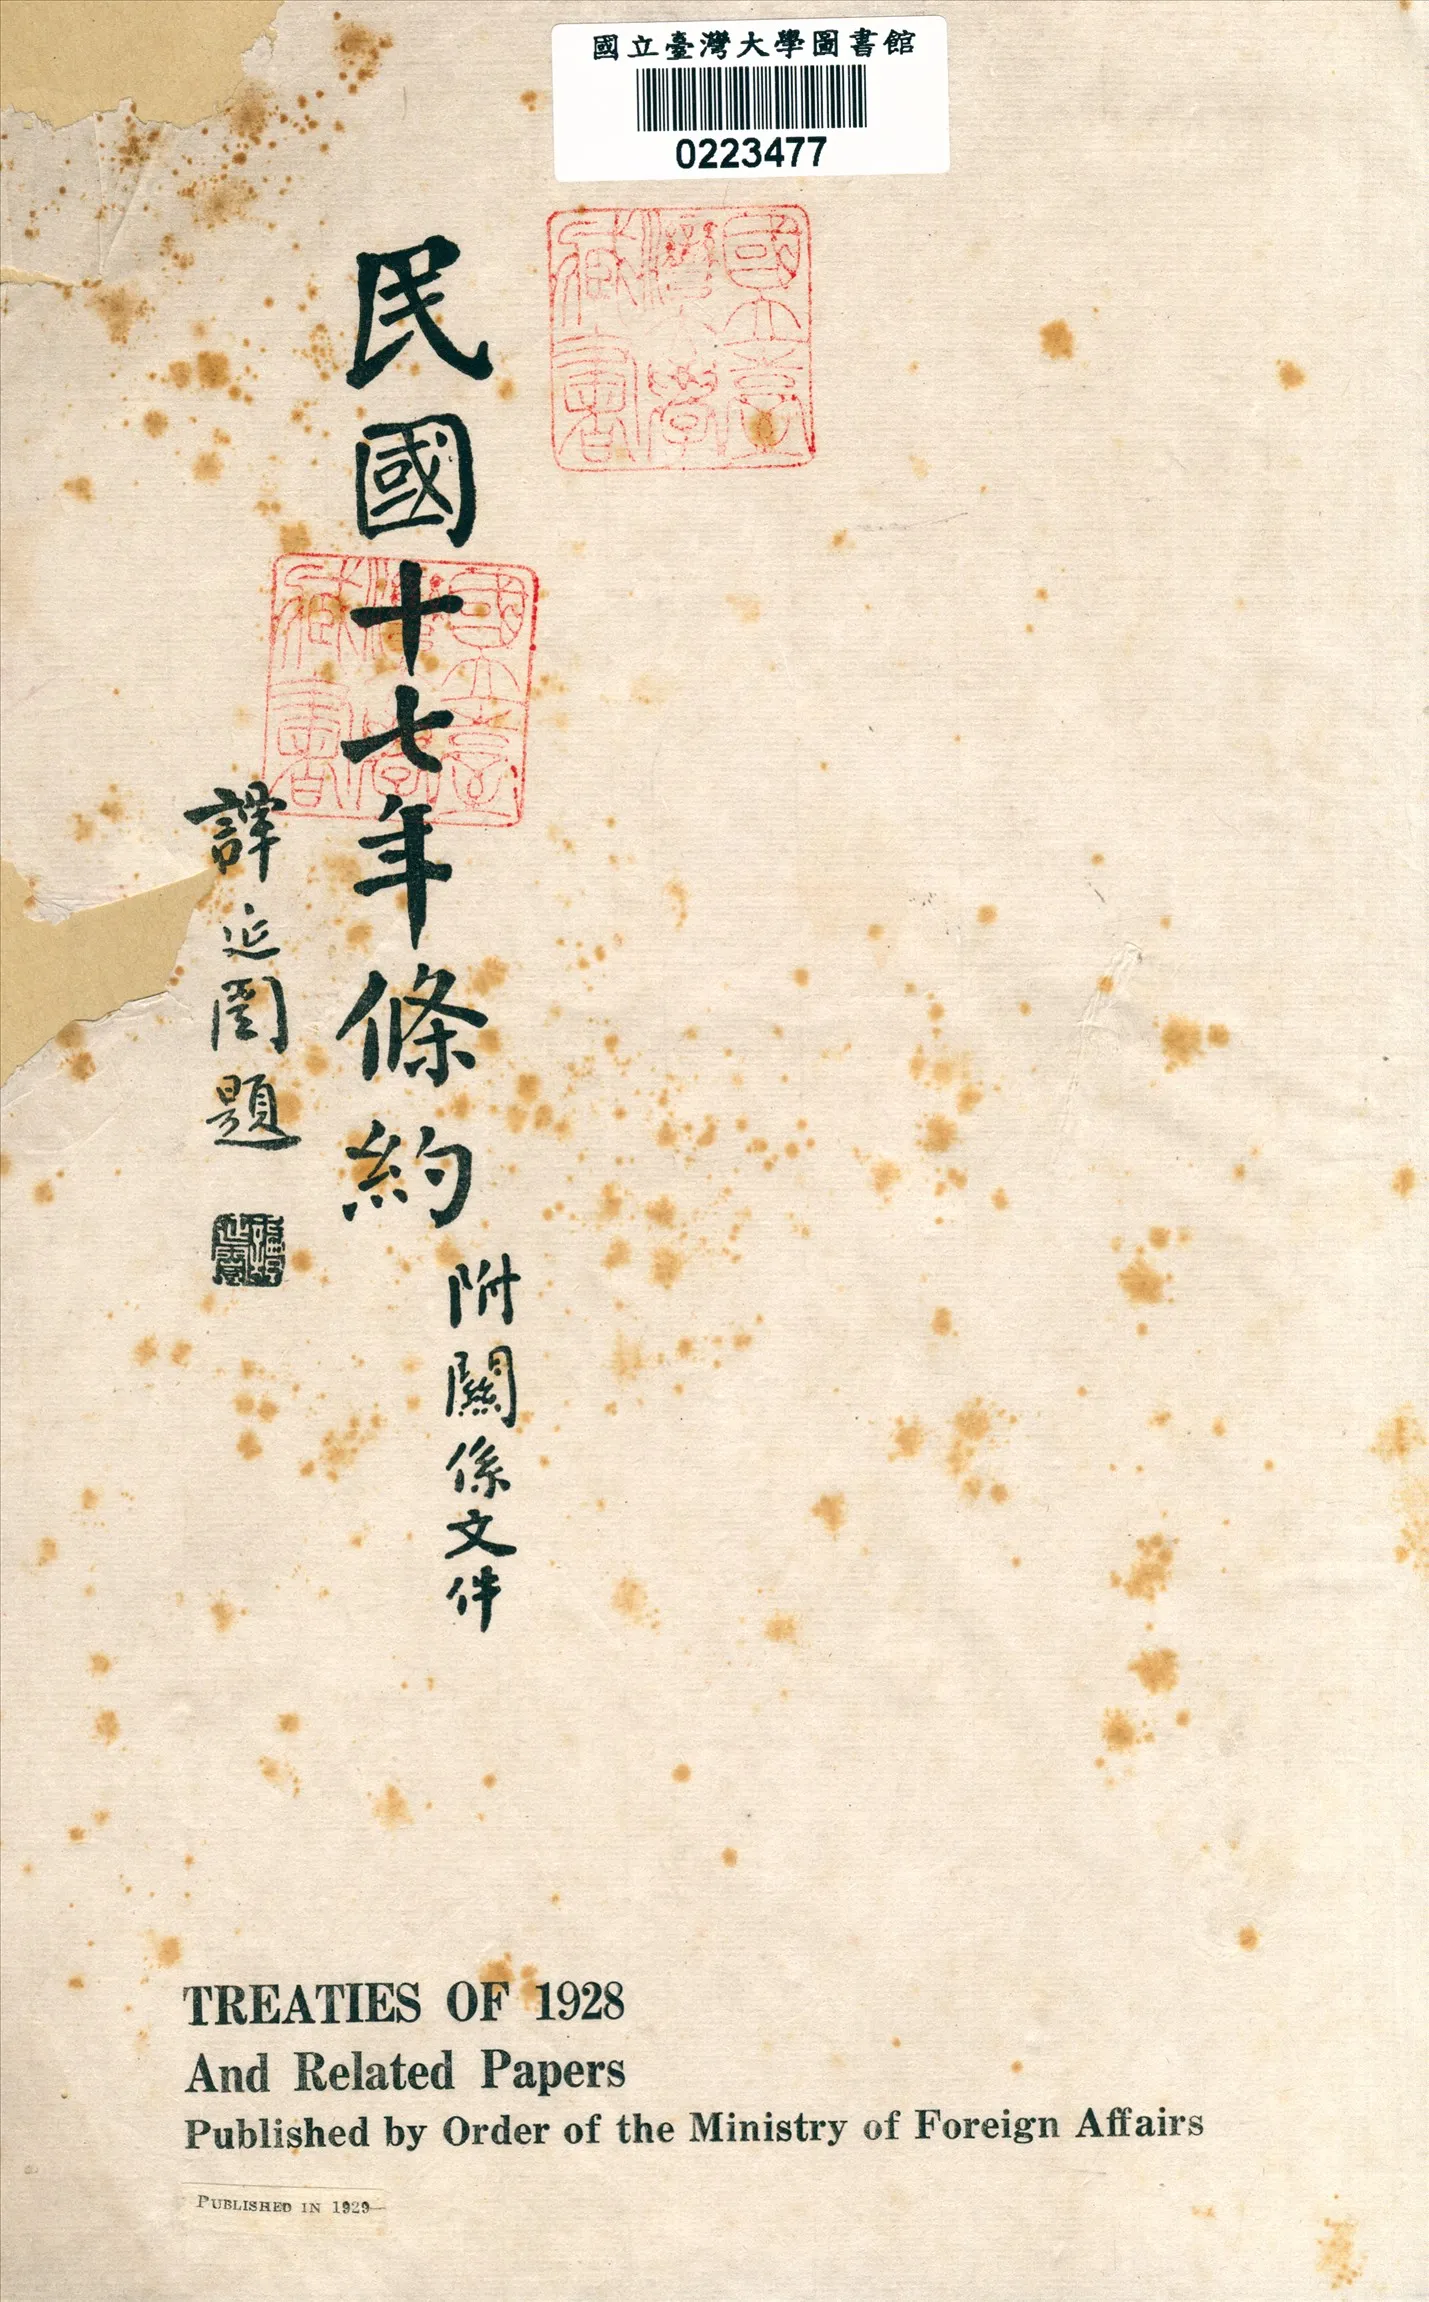 國立臺灣大學圖書館
0223477
國立臺
灣大學
藏書
民國十七年條約
附關係文件
國立臺
灣大學
藏書
譚延闓題
TREATIES OF 1928
And Related Papers
Published by Order of the Ministry of Foreign Affairs
PUBLISHED IN 1929